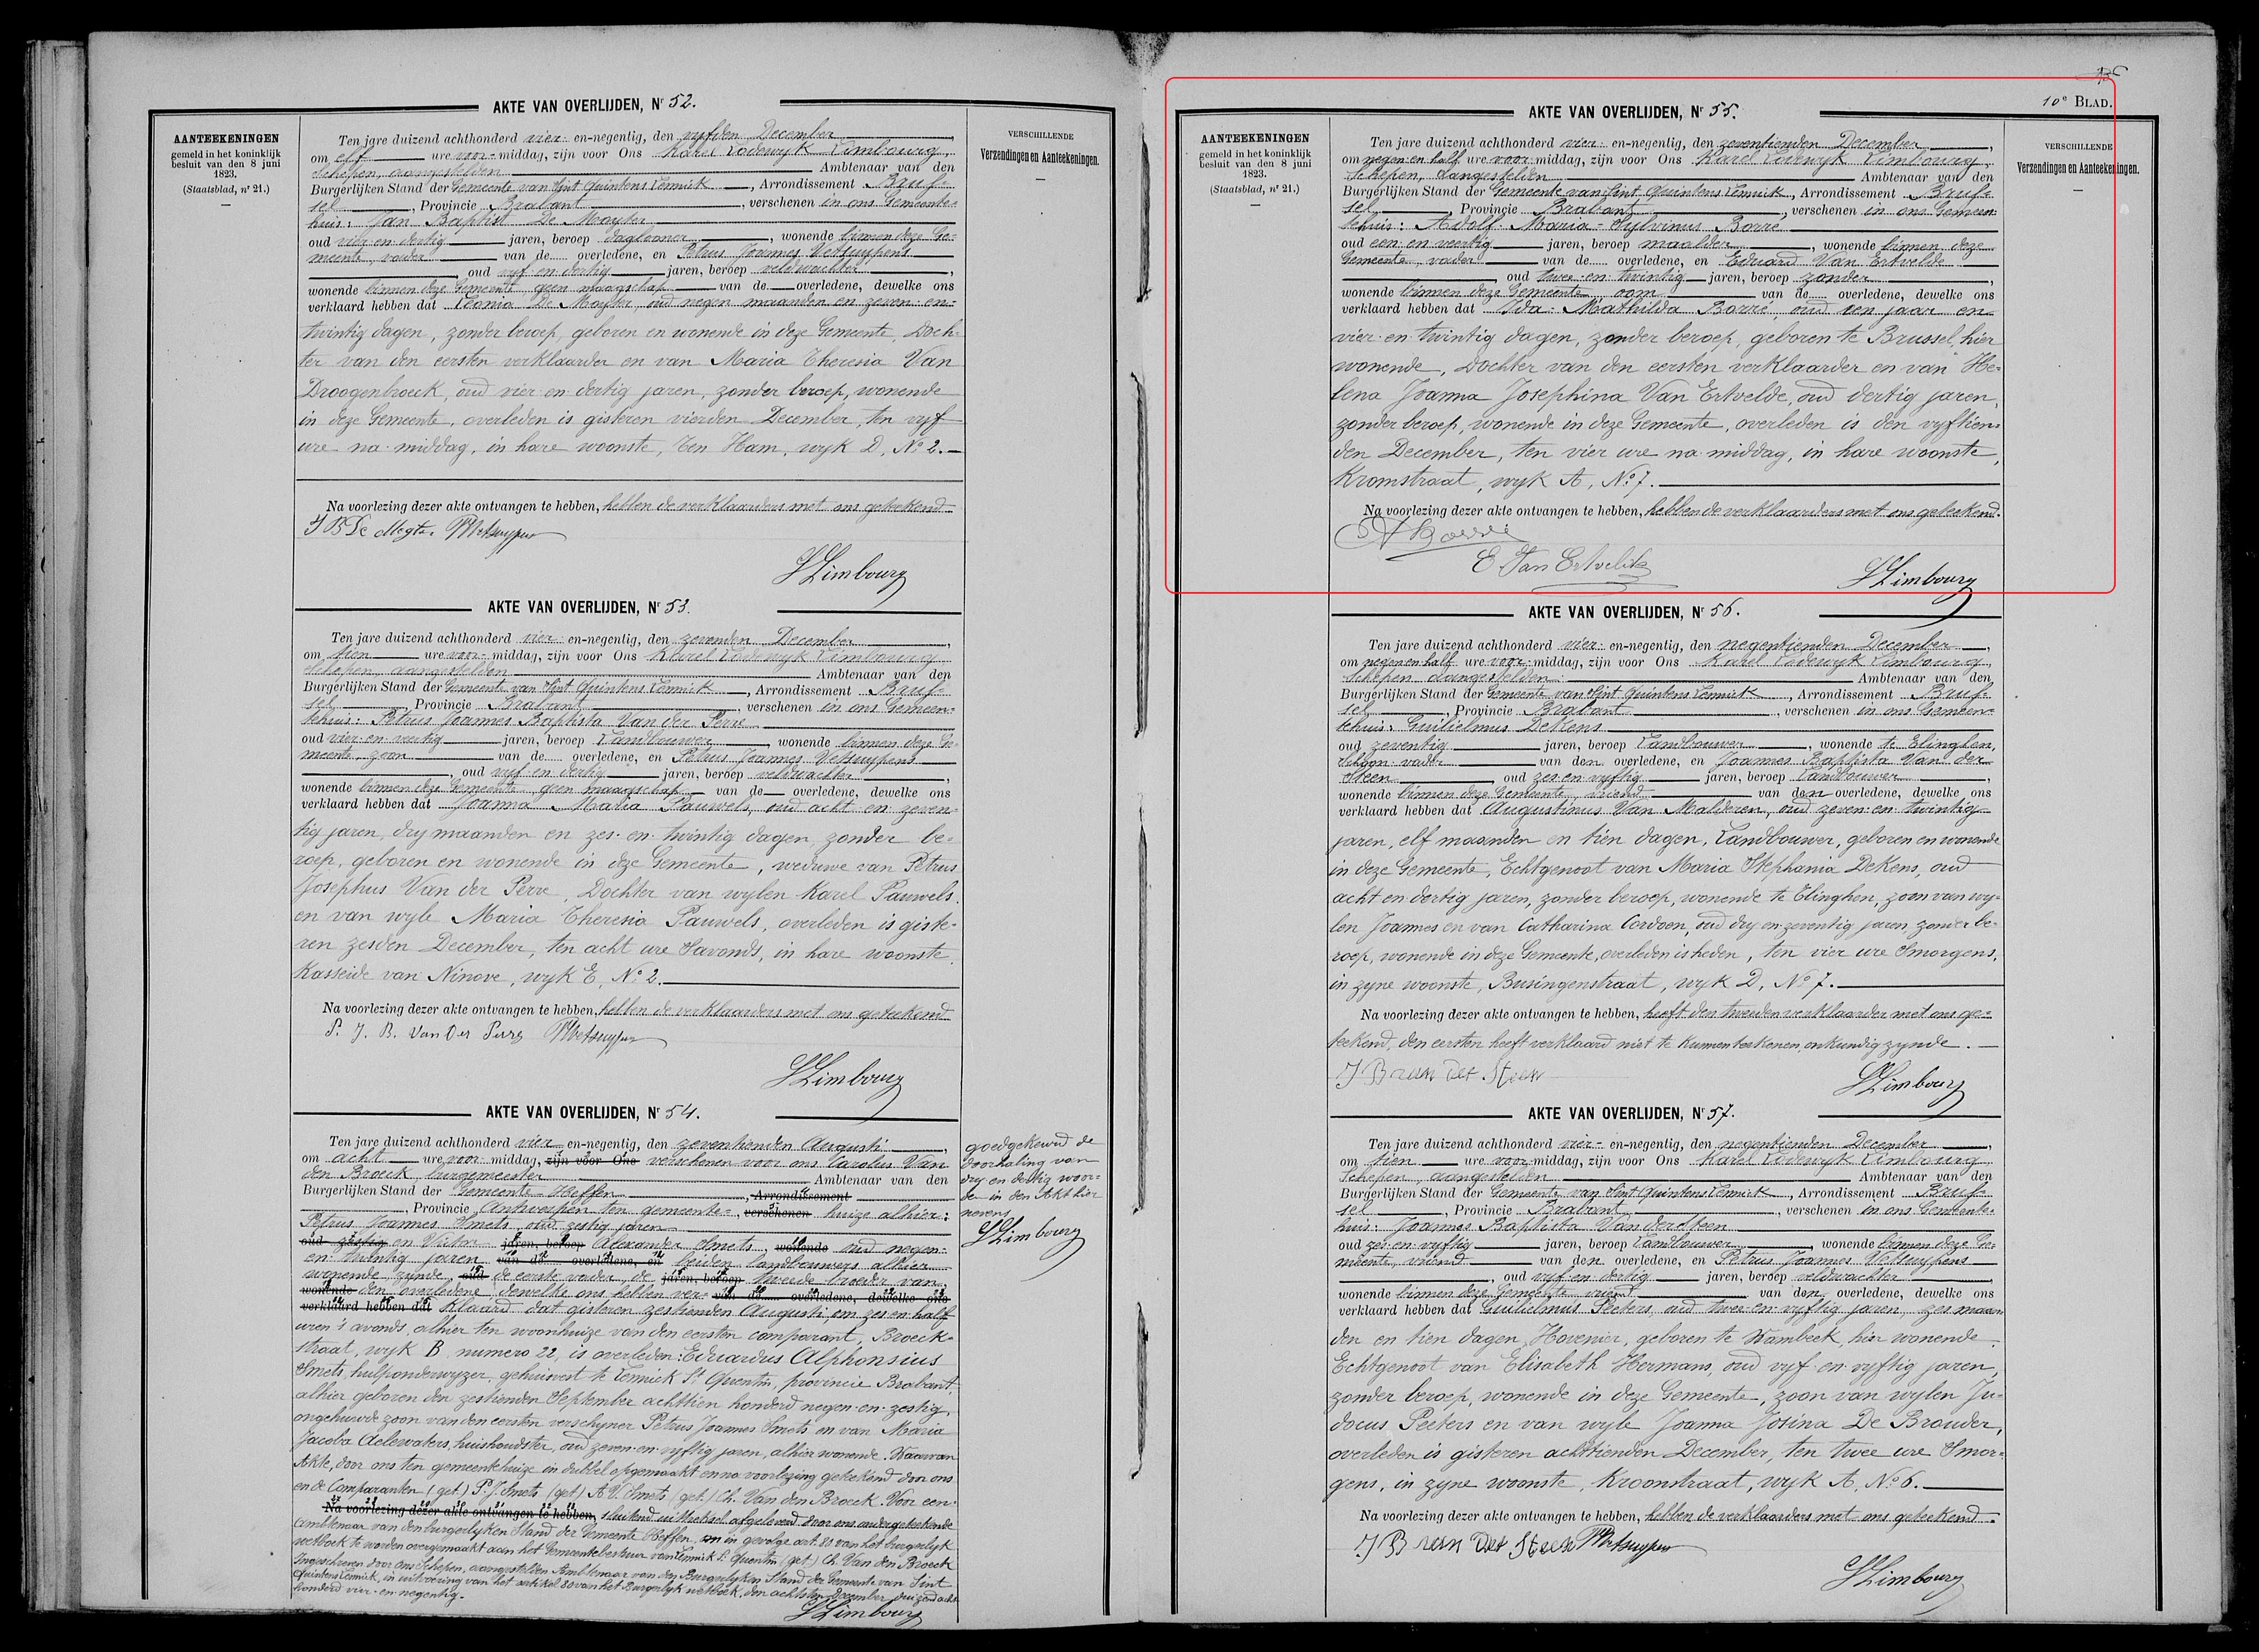 AKTE VAN OVERLIJDEN, Nr 52.
AANTEEKENINGEN
gemeld in het koninklijk
besluit van den 8 juni
1823.
(Staatsblad, nr 21.)
VERSCHILLENDE
Verzendingen en Aanteekeningen.
Ten jare duizend achthonderd vier- en-negentig, den vyfden December,
om elf ure voor-middag, zijn voor Ons Karel Lodewyk Limbourg,
Schepen, aangestelden Ambtenaar van den
Burgerlijken Stand der Gemeente van Sint Quintens Lennick, Arrondissement Brus-
sel, Provincie Brabant, verschenen in ons Gemeente-
huis: Jan Baptist De Mayter
oud vier en dertig jaren, beroep dagloner, wonende binnen deze Ge-
meente, vader van de overledene, en Petrus Joannes Vetsuypens
, oud vyf en dertig jaren, beroep veldwachter,
wonende binnen deze Gemeente geen maagschap van de overledene, dewelke ons
verklaard hebben dat Leonia De Mayter, oud negen maanden en zeven en-
twintig dagen, zonder beroep, geboren en wonende in deze Gemeente, Doch-
ter van den eersten verklaarder en van Maria Theresia Van
Droogenbroeck, oud vier en dertig jaren, zonder beroep, wonende
in deze Gemeente, overleden is gisteren vierden December, ten vyf
ure na middag, in hare woonste, Ten Ham, wyk D, No 2.
Na voorlezing dezer akte ontvangen te hebben, hebben de verklaarders met ons geteekend
J B De Megter PVetsuypens
Limbourg
AKTE VAN OVERLIJDEN, Nr 53.
Ten jare duizend achthonderd vier en-negentig, den zevenden December,
om tien ure voor-middag, zijn voor Ons Karel Lodewyk Limbourg
Schepen, aangestelden Ambtenaar van den
Burgerlijken Stand der Gemeente van Sint Quintens Lennick, Arrondissement Brus-
sel, Provincie Brabant, verschenen in ons Gemeen-
tehuis: Petrus Joannes Baptista Van der Perre
oud vier en veertig jaren, beroep Landbouwer, wonende binnen deze Ge-
meente, zoon van de overledene, en Petrus Joannes Vetsuypens
, oud vyf en dertig jaren, beroep veldwachter,
wonende binnen deze Gemeente, geen maagschap van de overledene, dewelke ons
verklaard hebben dat Joanna Maria Pauwels, oud acht en zeven-
tig jaren, dry maanden en zes en twintig dagen, zonder be-
roep, geboren en wonende in deze Gemeente, weduwe van Petrus
Josephus Van der Perre, Dochter van wylen Karel Pauwels
en van wyle Maria Theresia Pauwels, overleden is giste-
ren zesden December, ten acht ure Savonds, in hare woonste,
Kasseide van Ninove, wyk E, No 2.
Na voorlezing dezer akte ontvangen te hebben, hebben de verklaarders met ons geteekend
P. J. B. Van Der Perre PVetsuypens
Limbourg
AKTE VAN OVERLIJDEN, Nr 54.
Ten jare duizend achthonderd vier en-negentig, den zeventienden Augusti,
om acht ure voor middag, zijn voor Ons verschenen voor ons Carolus Van
den Broeck, burgemeester Ambtenaar van den
Burgerlijken Stand der Gemeente Heffen, Arrondissement
, Provincie Antwerpen ten gemeente-, verschenen huize alhier:
Petrus Joannes Smets, oud zestig jaren
oud zestig en Victor jaren, beroep Alexander Smets, wonende oud negen-
en twintig jaren van de overledene, en beiden landbouwers alhier
wonende, zynde, oud de eerste vader, de jaren, beroep tweede broeder van
wonende den overledene, dewelke ons hebben ver- van de overledene, dewelke ons
verklaard hebben dat klaard dat gisteren zestienden Augusti om zes en half
uren 's avonds, alhier ten woonhuize van den eersten comparant, Broeck-
straat, wyk B numero 22, is overleden: Eduardus Alphonsius
Smets, hulponderwyzer, gehuisvest te Lennick St Quentin, provincie Brabant,
alhier geboren den zestienden September achttien honderd negen-en-zestig,
ongehuwde zoon van den eersten verschyner Petrus Joannes Smets en van Maria
Jacoba Aelewaters, huishoudster, oud zeven en vyftig jaren, alhier wonende. Waarvan
Akte, door ons ten gemeentehuize in dubbel opgemaakt en na voorlezing geteekend door ons
en de Comparanten (get.) P. J. Smets (get) A V. Smets (get.) Ch. Van den Broeck. Voor een-
Na voorlezing dezer akte ontvangen te hebben, sluidend uittreksel afgeleverd door ons ondergeteekende
ambtenaar van den burgerlyken Stand der Gemeente Heffen, om in gevolge art. 80 van het burgerlyk
wetboek te worden overgemaakt aan het Gemeentebestuur van Lennick St Quentin (get.) Ch. Van den Broeck
Ingeschreven door ons Schepen, aangestelden Ambtenaar van den Burgerlyken Stand der Gemeente van Sint
Quintens Lennick, in uitvoering van het artikel 80 van het Burgerlyk wetboek, den achtsten December duizend acht-
honderd vier en negentig.
Limbourg
goedgekeurd de
doorhaling van
dry en dertig woor-
de in den Akt hier
nevens
Limbourg
10e BLAD.
AKTE VAN OVERLIJDEN, Nr 55.
AANTEEKENINGEN
gemeld in het koninklijk
besluit van den 8 juni
1823.
(Staatsblad, nr 21.)
VERSCHILLENDE
Verzendingen en Aanteekeningen.
Ten jare duizend achthonderd vier- en-negentig, den zeventienden December,
om negen en half ure voor-middag, zijn voor Ons Karel Lodewyk Limbourg,
Schepen, aangestelden Ambtenaar van den
Burgerlijken Stand der Gemeente van Sint Quintens Lennick, Arrondissement Brus-
sel, Provincie Brabant, verschenen in ons Gemeen-
tehuis: Adolf-Maria-Sylvinus Borré
oud een en veertig jaren, beroep maalder, wonende binnen deze
Gemeente, vader van de overledene, en Eduard Van Ertvelde
, oud twee en twintig jaren, beroep zonder,
wonende binnen deze Gemeente, oom van de overledene, dewelke ons
verklaard hebben dat Ida Mathilda Borré, oud een jaar en
vier en twintig dagen, zonder beroep, geboren te Brussel, hier
wonende, Dochter van den eersten verklaarder en van He-
lena Joanna Josephina Van Ertvelde, oud dertig jaren,
zonder beroep, wonende in deze Gemeente, overleden is den vyftien-
den December, ten vier ure na middag, in hare woonste,
Kromstraat, wyk A, No 7.
Na voorlezing dezer akte ontvangen te hebben, hebben de verklaarders met ons geteekend.
A Borré
E. Van Ertvelde
Limbourg
AKTE VAN OVERLIJDEN, Nr 56.
Ten jare duizend achthonderd vier- en-negentig, den negentienden December,
om negen en half ure voor-middag, zijn voor Ons Karel Lodewyk Limbourg,
Schepen aangestelden Ambtenaar van den
Burgerlijken Stand der Gemeente van Sint Quintens Lennick, Arrondissement Brus-
sel, Provincie Brabant, verschenen in ons Gemeen-
tehuis: Guilielmus DeKens
oud zeventig jaren, beroep Landbouwer, wonende te Elinghen,
Schoon-vader van den overledene, en Joannes Baptista Van der
Steen, oud zes en vyftig jaren, beroep Landbouwer,
wonende binnen deze Gemeente, vriend van den overledene, dewelke ons
verklaard hebben dat Augustinus Van Malderen, oud zeven en twintig
jaren, elf maanden en tien dagen, Landbouwer, geboren en wonende
in deze Gemeente, Echtgenoot van Maria Stephania DeKens, oud
acht en dertig jaren, zonder beroep, wonende te Elinghen, zoon van wy-
len Joannes en van Catharina Cordoen, oud dry en zeventig jaren zonder be-
roep, wonende in deze Gemeente, overleden is heden, ten vier ure Smorgens,
in zyne woonste, Busingenstraat, wyk D, No 7.
Na voorlezing dezer akte ontvangen te hebben, heeft den tweeden verklaarder met ons ge-
teekend, den eersten heeft verklaard niet te kunnen teekenen, onkundig zynde.
J B van Der Steen
Limbourg
AKTE VAN OVERLIJDEN, Nr 57.
Ten jare duizend achthonderd vier- en-negentig, den negentienden December,
om tien ure voor-middag, zijn voor Ons Karel Lodewyk Limbourg
Schepen, aangestelden Ambtenaar van den
Burgerlijken Stand der Gemeente van Sint Quintens Lennick, Arrondissement Brus-
sel, Provincie Brabant, verschenen in ons Gemeente-
huis: Joannes Baptista Van der Steen
oud zes en vyftig jaren, beroep Landbouwer, wonende binnen deze Ge-
meente, vriend van den overledene, en Petrus Joannes Vetsuypens
, oud vyf en dertig jaren, beroep veldwachter,
wonende binnen deze Gemeente vriend van den overledene, dewelke ons
verklaard hebben dat Guilielmus Peeters, oud twee en vyftig jaren, zes maan-
den en tien dagen, Hovenier, geboren te Wambeek, hier wonende,
Echtgenoot van Elisabeth Hermans, oud vyf en vyftig jaren,
zonder beroep, wonende in deze Gemeente, zoon van wylen Ju-
docus Peeters en van wyle Joanna Josina De Brouder,
overleden is gisteren achttienden December, ten twee ure Smor-
gens, in zyne woonste, Kroonstraat, wyk A, No 6.
Na voorlezing dezer akte ontvangen te hebben, hebben de verklaarders met ons geteekend.
J B van Der Steen PVetsuypens
Limbourg